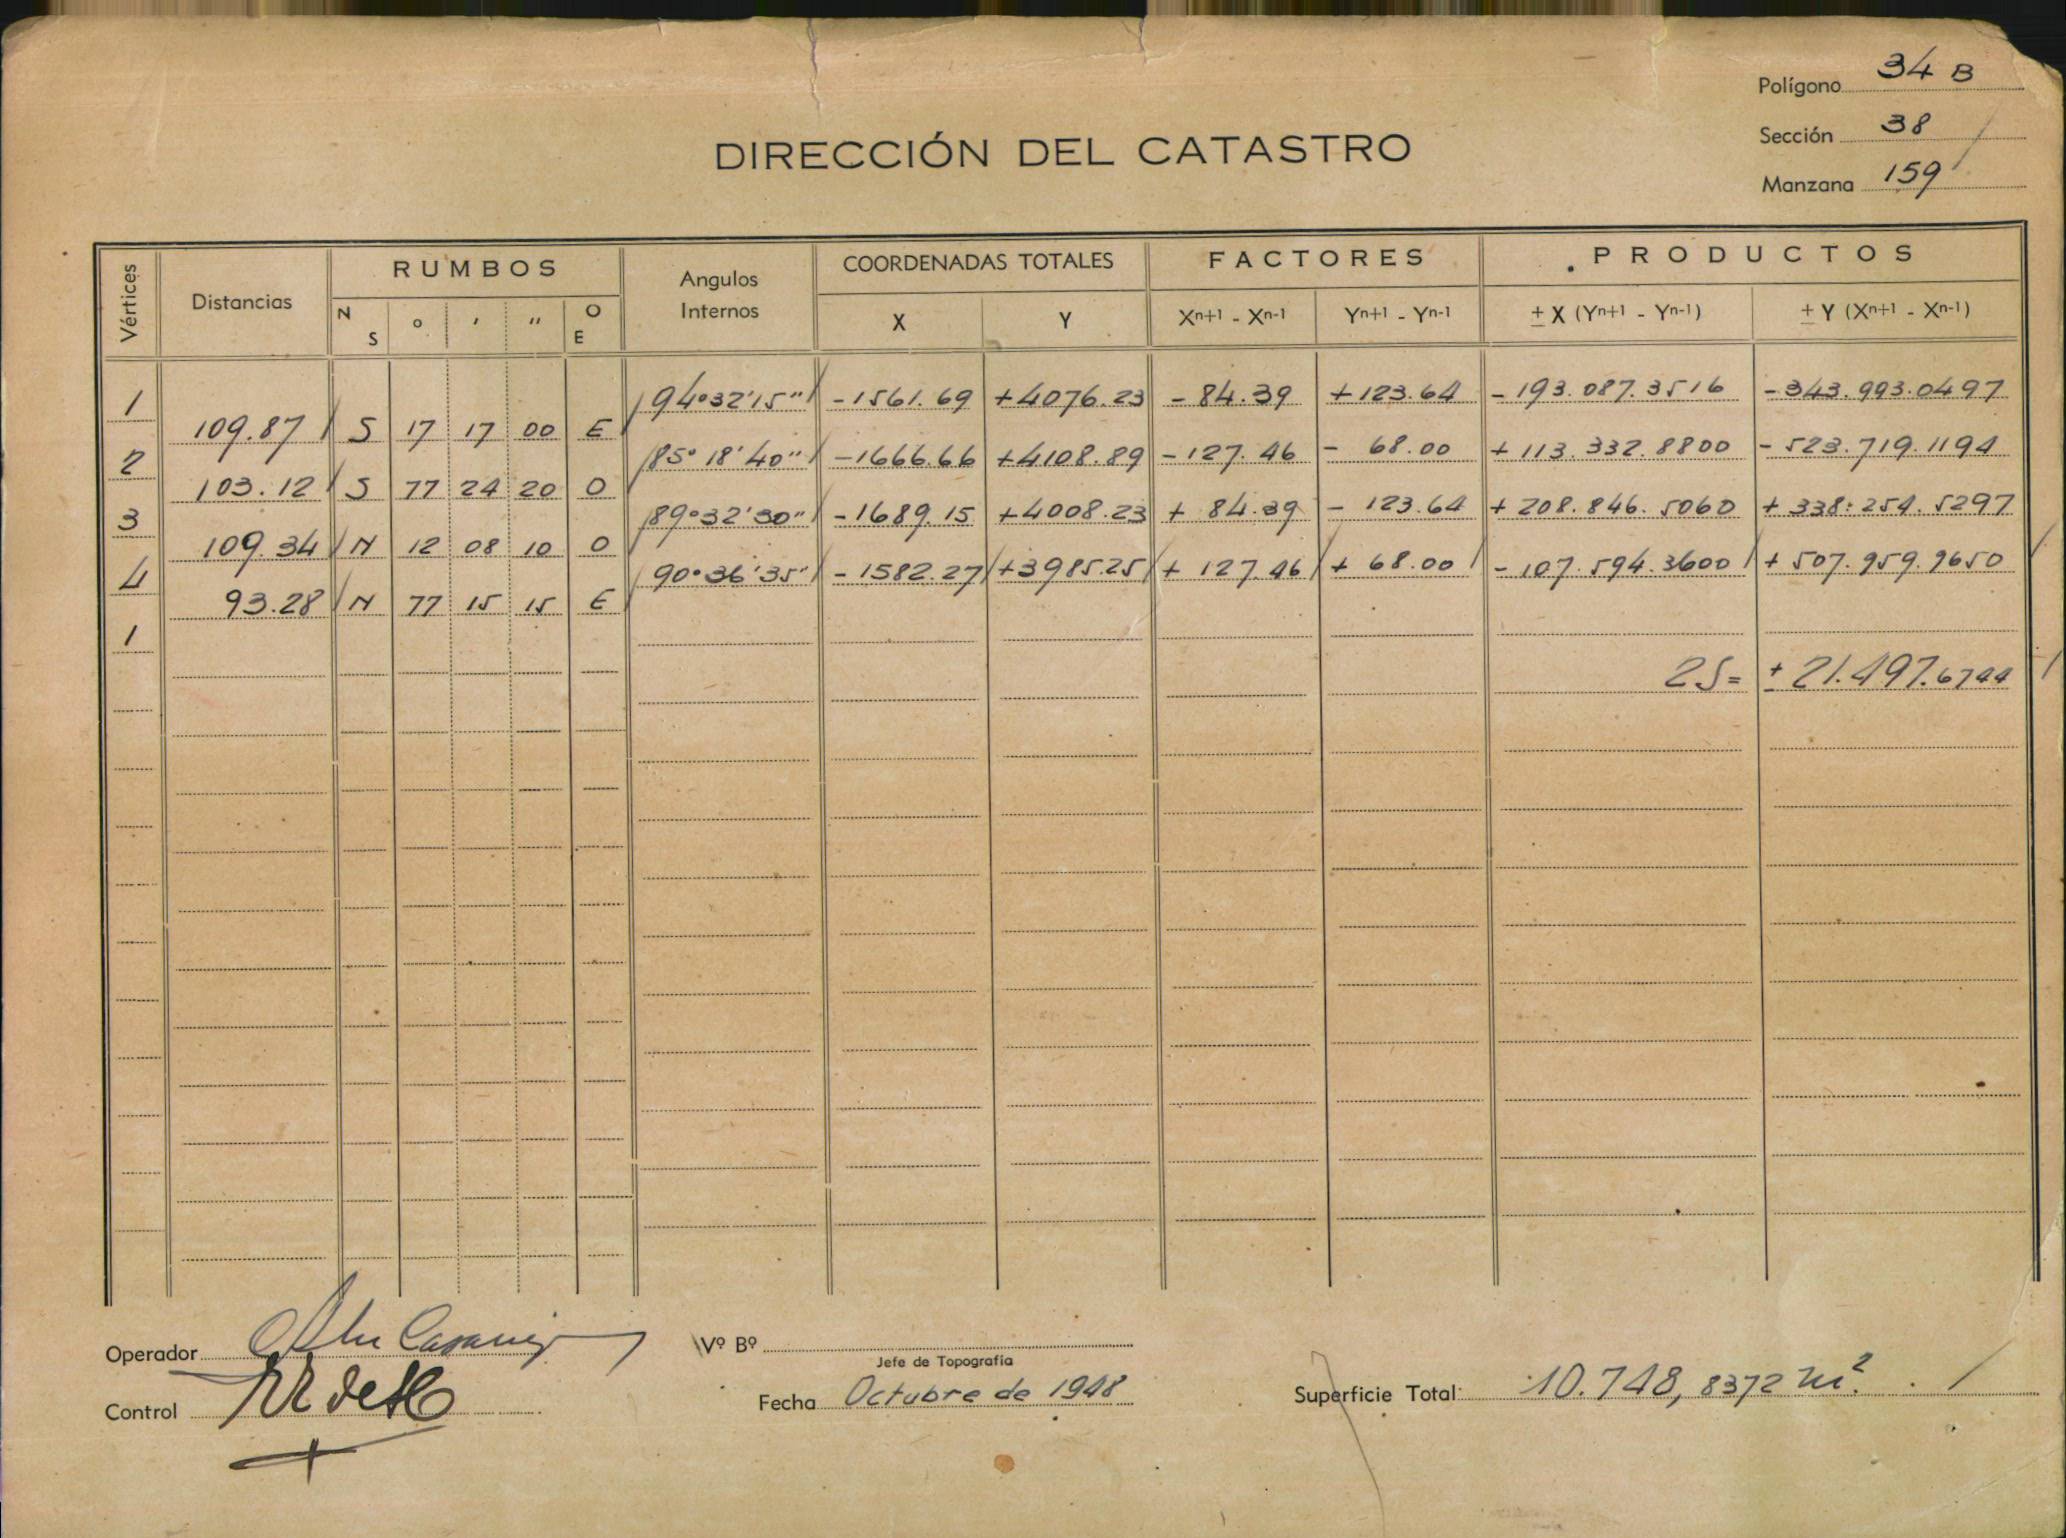 Polígono 34 B
Sección 38
Manzana 159
DIRECCIÓN DEL CATASTRO
Vértices Distancias RUMBOS Angulos Internos COORDENADAS TOTALES FACTORES PRODUCTOS
N S ° ' " O E X Y Xn+1 - Xn-1 Yn+1 - Yn-1 ± X (Yn+1 - Yn-1) ± Y (Xn+1 - Xn-1)
1 94°32'15" -1561.69 +4076.23 - 84.39 +123.64 - 193.087.3516 -343.993.0497
109.87 S 17 17 00 E
2 85°18'40" -1666.66 +4108.89 -127.46 - 68.00 + 113.332.8800 - 523.719.1194
103.12 S 77 24 20 O
3 89°32'30" -1689.15 +4008.23 + 84.39 - 123.64 + 208.846.5060 + 338.254.5297
109.34 N 12 08 10 O
4 90°36'35" -1582.27 +3985.25 + 127.46 + 68.00 - 107.594.3600 + 507.959.9650
93.28 N 77 15 15 E
1
2S= ± 21.497.6744
Operador
Vº Bº
Jefe de Topografía
Control
Fecha Octubre de 1948
Superficie Total 10.748,8372 m².